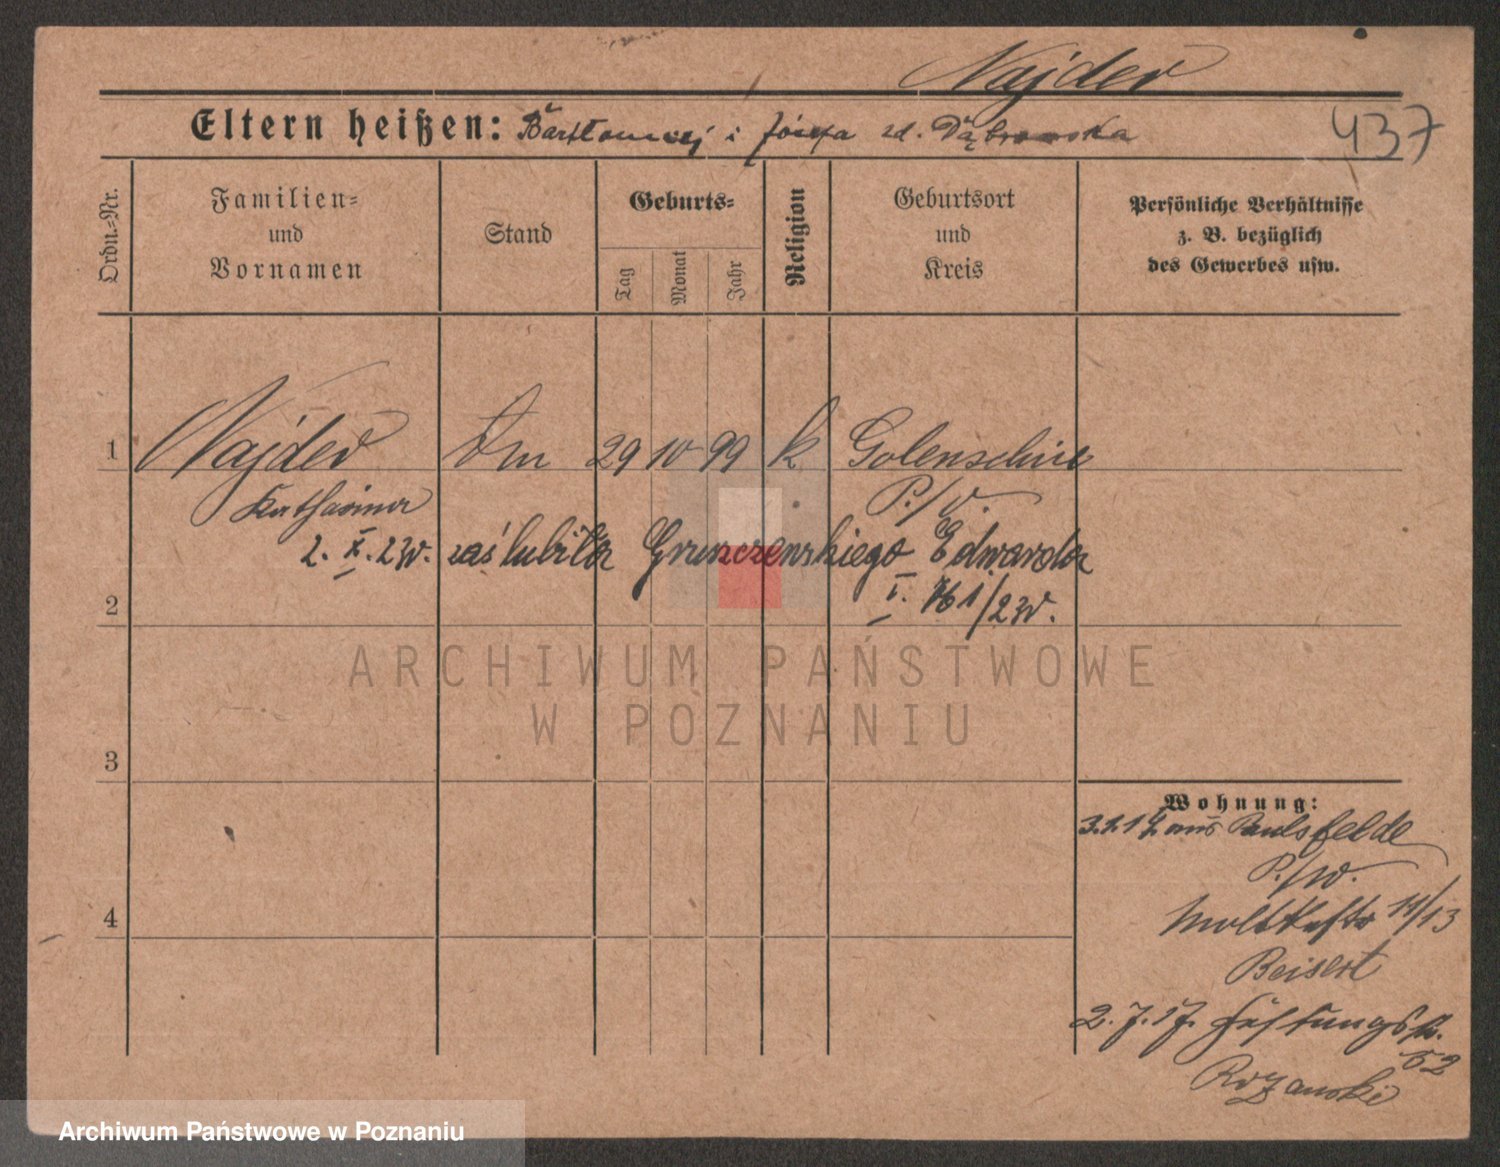 Najder
Eltern heißen: Bartłomiej i Józefa zd. Dąbrowska
437
Ordn.-Nr.
Familien-
und
Vornamen
Stand
Geburts-
Tag
Monat
Jahr
Religion
Geburtsort
und
Kreis
Persönliche Verhältnisse
z. B. bezüglich
des Gewerbes usw.
1 Najder Dm 29 10 99 k Golenschin
Katharina P./W.
2. X. 23r. zaślubiła Gruszczenskiego Edwarda
2
I. 761/23r.
ARCHIWUM PAŃSTWOWE
W POZNANIU
3
Wohnung:
3.1.17 aus Paulsfelde
P./W.
4
Moltkestr 11/13
Beisert
2.7.17. Festungsstr.
52
Rozanski
Archiwum Państwowe w Poznaniu